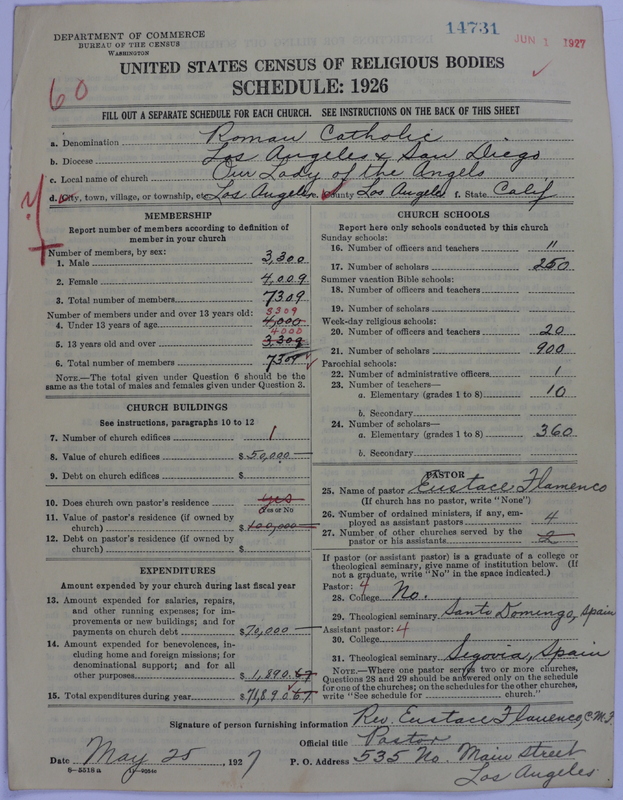 14731
JUN 1 1927
DEPARTMENT OF COMMERCE
BUREAU OF THE CENSUS
WASHINGTON
UNITED STATES CENSUS OF RELIGIOUS BODIES
SCHEDULE: 1926
60
FILL OUT A SEPARATE SCHEDULE FOR EACH CHURCH. SEE INSTRUCTIONS ON THE BACK OF THIS SHEET
a. Denomination Roman Catholic
b. Diocese Los Angeles & San Diego
c. Local name of church Our Lady of the Angels
d. City, town, village, or township, etc Los Angeles e. County Los Angeles f. State Calif
MEMBERSHIP
Report number of members according to definition of
member in your church
Number of members, by sex:
1. Male 3,300
2. Female 4,009
3. Total number of members 7309
Number of members under and over 13 years old: 3309
4. Under 13 years of age 4,000
4000
5. 13 years old and over 3,309
6. Total number of members 7309
NOTE.—The total given under Question 6 should be the
same as the total of males and females given under Question 3.
CHURCH BUILDINGS
See instructions, paragraphs 10 to 12
7. Number of church edifices 1
8. Value of church edifices $50,000
9. Debt on church edifices $
10. Does church own pastor's residence yes
Yes or No
11. Value of pastor's residence (if owned by
church) $100,000
12. Debt on pastor's residence (if owned by
church) $
EXPENDITURES
Amount expended by your church during last fiscal year
13. Amount expended for salaries, repairs,
and other running expenses; for im-
provements or new buildings; and for
payments on church debt $70,000
14. Amount expended for benevolences, in-
cluding home and foreign missions; for
denominational support; and for all
other purposes $1,890.67
15. Total expenditures during year $71,890.67
CHURCH SCHOOLS
Report here only schools conducted by this church
Sunday schools:
16. Number of officers and teachers 11
17. Number of scholars 250
Summer vacation Bible schools:
18. Number of officers and teachers
19. Number of scholars
Week-day religious schools:
20. Number of officers and teachers 20
21. Number of scholars 900
Parochial schools:
22. Number of administrative officers 1
23. Number of teachers—
a. Elementary (grades 1 to 8) 10
b. Secondary
24. Number of scholars—
a. Elementary (grades 1 to 8) 360
b. Secondary
PASTOR
25. Name of pastor Eustace Flamenco
(If church has no pastor, write "None")
26. Number of ordained ministers, if any, em-
ployed as assistant pastors 4
27. Number of other churches served by the
pastor or his assistants 2
If pastor (or assistant pastor) is a graduate of a college or
theological seminary, give name of institution below. (If
not a graduate, write "No" in the space indicated.)
Pastor: 4
28. College No.
29. Theological seminary Santo Domingo, Spain
Assistant pastor: 4
30. College
31. Theological seminary Segovia, Spain
NOTE.—Where one pastor serves two or more churches,
Questions 28 and 29 should be answered only on the schedule
for one of the churches; on the schedules for the other churches,
write "See schedule for church."
Signature of person furnishing information Rev. Eustace Flamenco, C.M.F.
Official title Pastor
Date May 25, 1927 P. O. Address 535 No. Main Street
8—5518 a Los Angeles